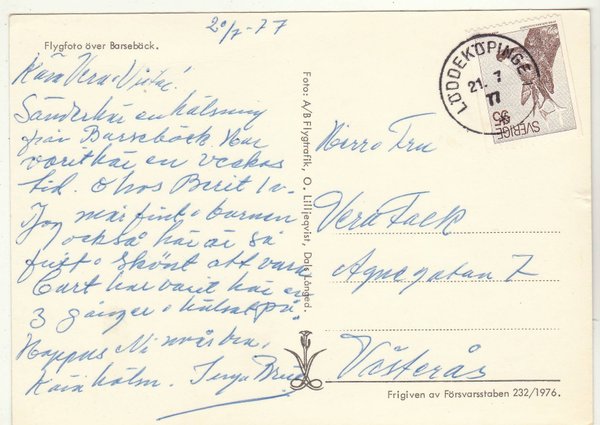 20/7-77
Flygfoto över Barsebäck.
Kära Vera o
Sänder här en hälsning
från Barsebäck Har
varit här en veckas
tid. o hos Berit 1 v.
Jag mår fint o barnen
också här är så
fint o skönt att vara
har varit här en
3 gånger o hälsat på.
Hoppas Ni mår bra,
Kära hälsn.
Foto: A/B Flygtrafik, O. Lilljeqvist, Dals Långed.
LÖDDEKÖPINGE
21. 7
77
SVERIGE
95
Herro Fru
Vera Fack
Agnegatan 7
Västerås
Frigiven av Försvarsstaben 232/1976.